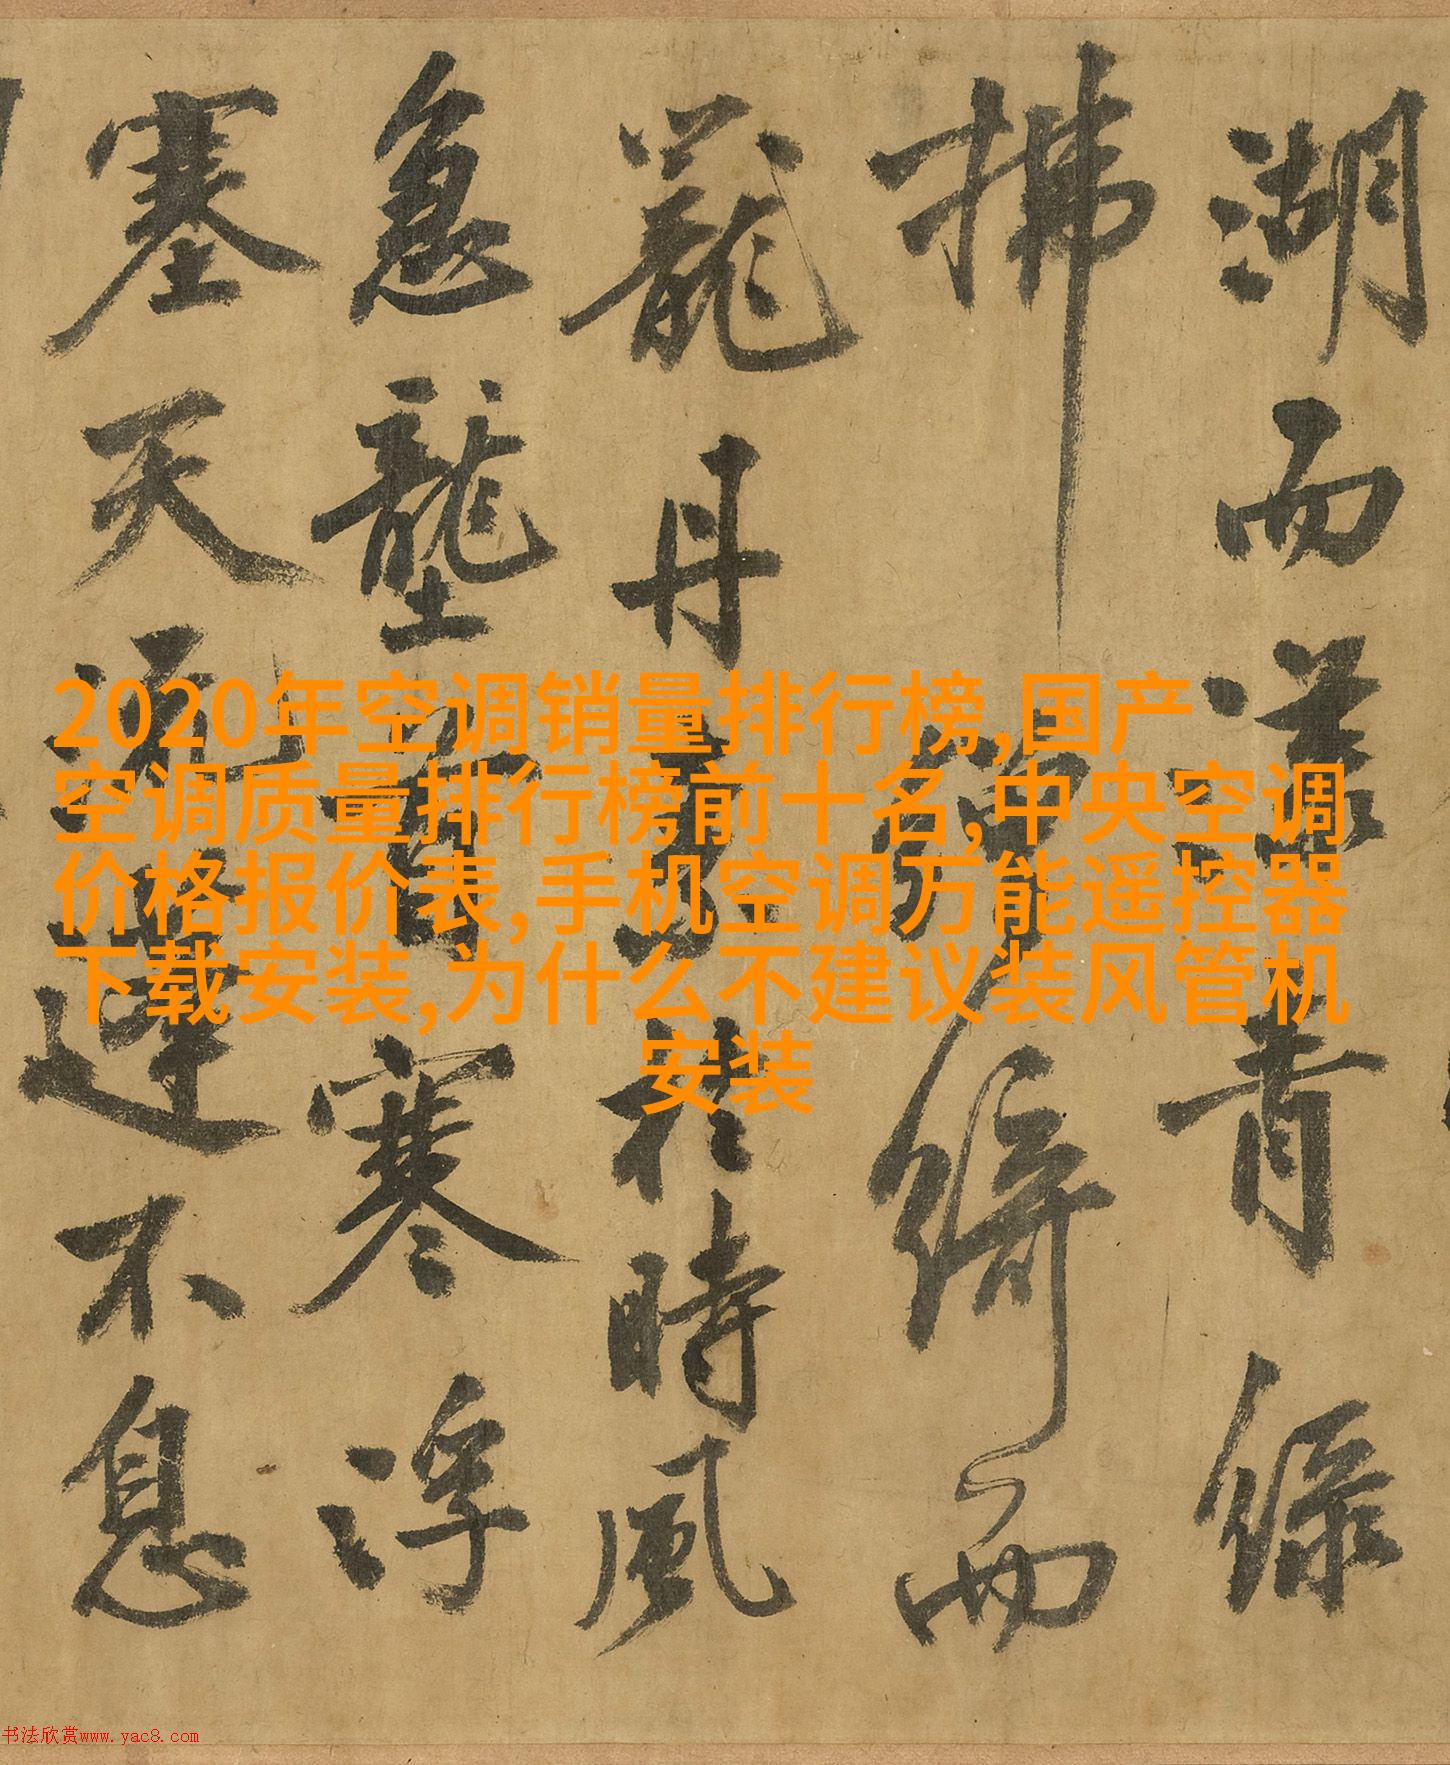 湖而漾青緑
拂綺而
籠丹於時風
急壟首寒浮
塞天不息
2020年空调销量排行榜,国产
空调质量排行榜前十名,中央空调
价格报价表,手机空调万能遥控器
下载安装,为什么不建议装风管机
安装
书法欣赏www.yac8.com